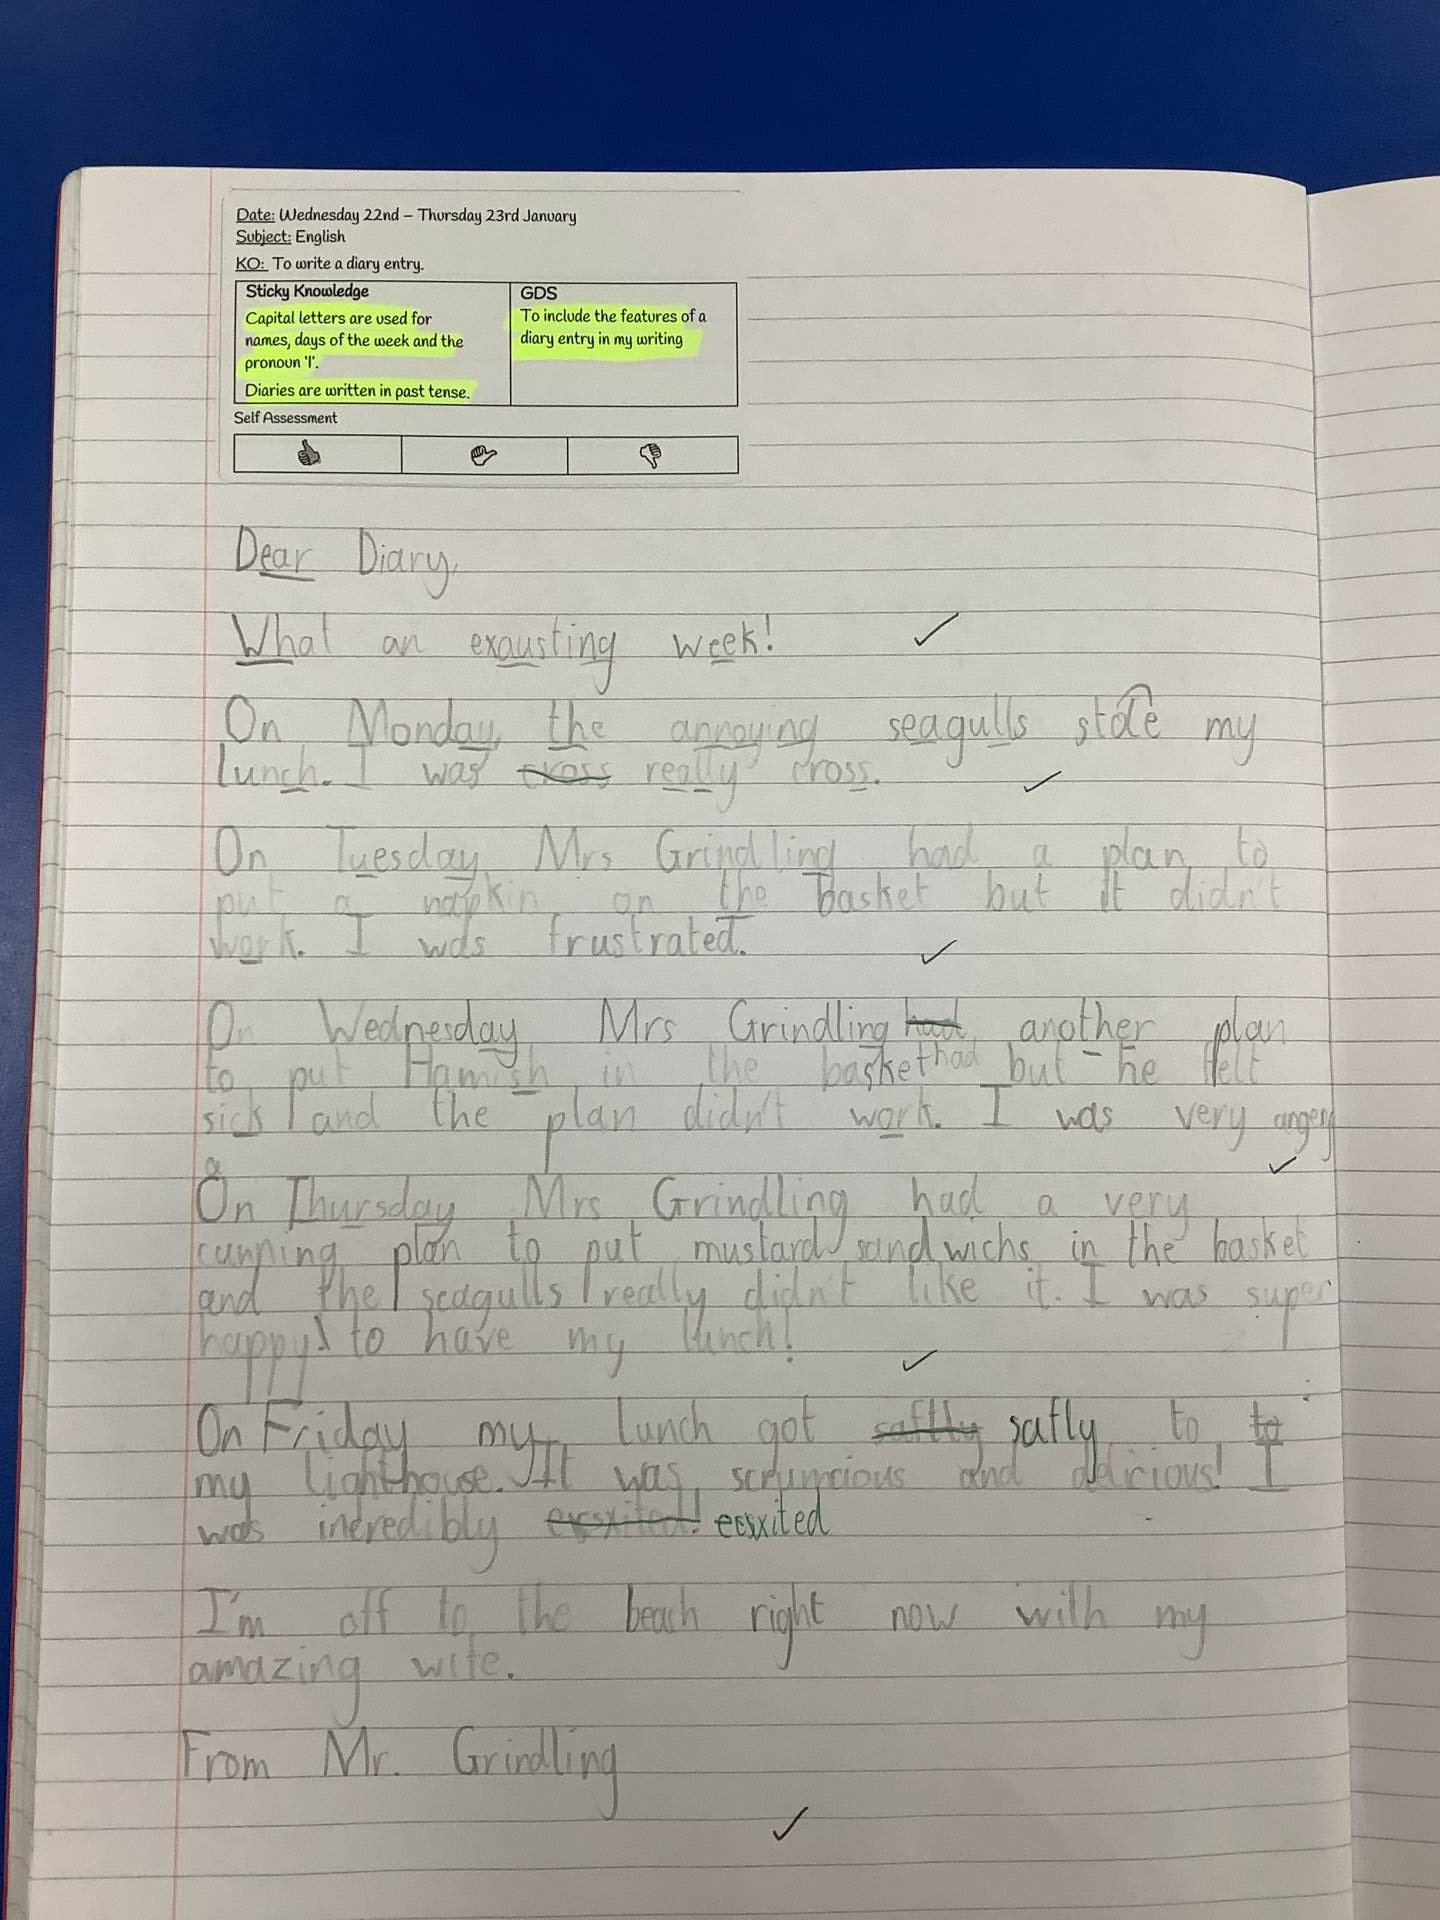 Date: Wednesday 22nd – Thursday 23rd January
Subject: English
KO: To write a diary entry.
Sticky Knowledge
Capital letters are used for
names, days of the week and the
pronoun 'I'.
Diaries are written in past tense.
GDS
To include the features of a
diary entry in my writing
Self Assessment
Dear Diary,
What an exausting week!
On Monday, the annoying seagulls stole my
lunch. I was cross really cross.
On Tuesday Mrs Grindling had a plan to
put a napkin on the basket but it didn't
work. I was frustrated.
On Wednesday Mrs Grindling had another plan
to put Hamish in the basket had but he felt
sick and the plan didn't work. I was very angery
On Thursday Mrs Grindling had a very
cunning plan to put mustard sandwichs in the basket
and the seagulls really didn't like it. I was super
happy to have my lunch!
On Friday my lunch got saftly safly to to
my lighthouse. It was scrumcious and delicious! I
was incredibly ecsxited! ecsxited
I'm off to the beach right now with my
amazing wife.
From Mr. Grindling